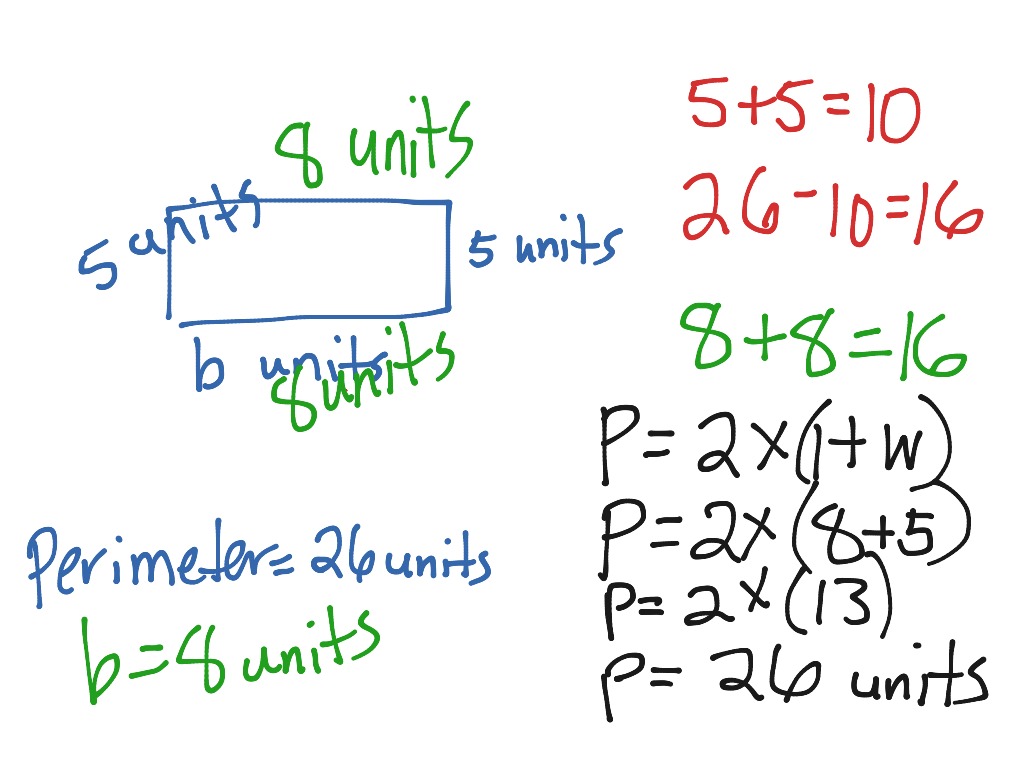 8 units
5 units
5 units
b units
8 units
Perimeter = 26 units
b = 8 units
5 + 5 = 10
26 - 10 = 16
8 + 8 = 16
P = 2 x (l + w)
P = 2 x (8 + 5)
P = 2 x (13)
P = 26 units